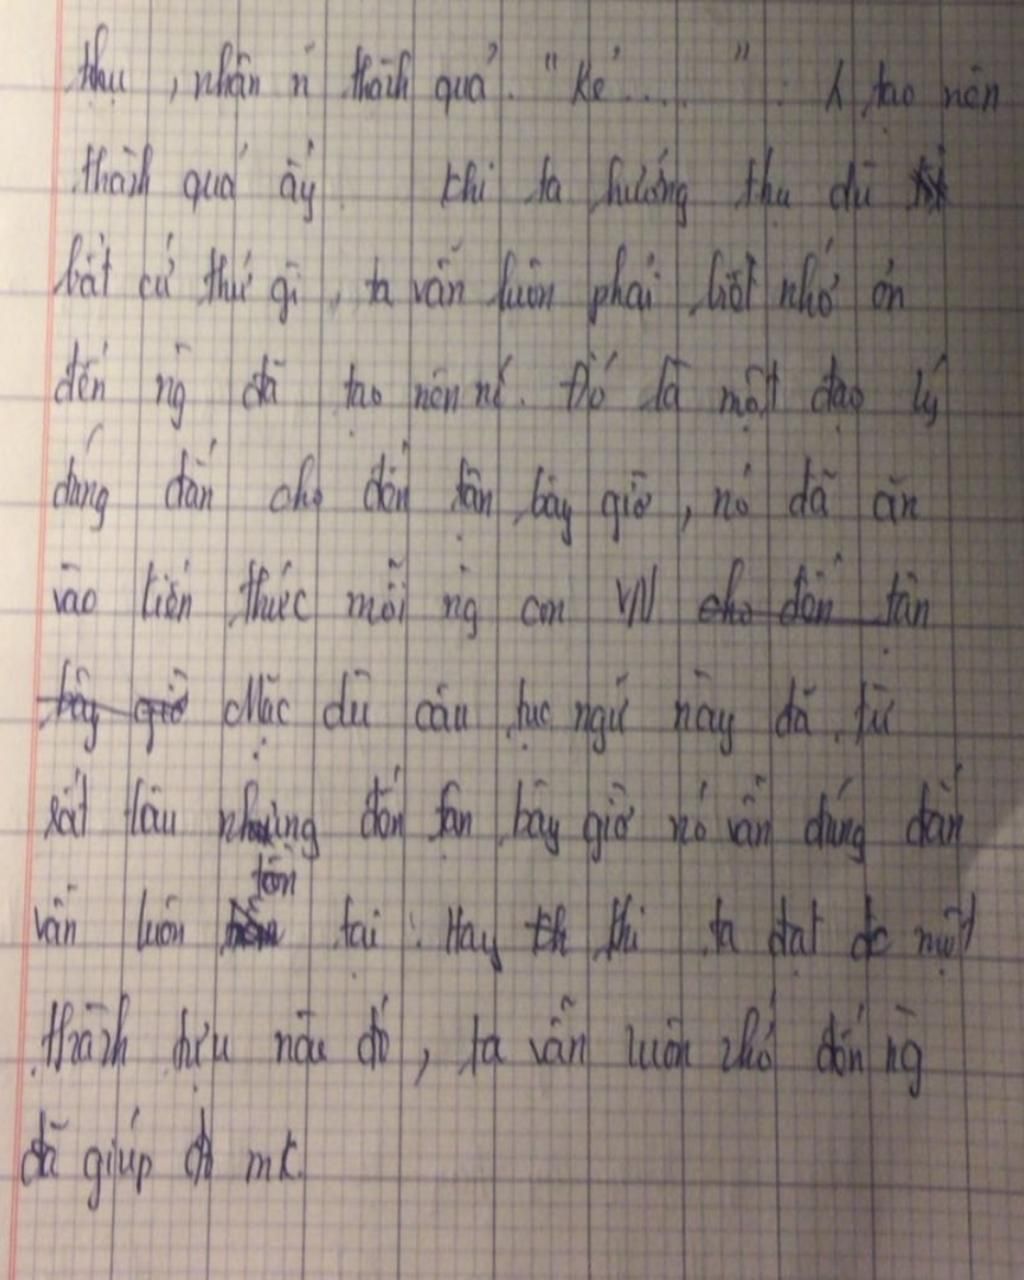 thụ , nhận n thành quả. "Kẻ .... " . tạo nên
thành quả ấy. Khi ta hưởng thụ dù
bất cứ thứ gì , ta vẫn luôn phải biết nhớ ơn
đến ng đã tạo nên nó. Đó là một đạo lý
đúng đắn cho đến tận bây giờ , nó đã ăn
vào kiến thức mỗi ng con VN cho đến tận
bây giờ Mặc dù câu tục ngữ này đã từ
rất lâu nhưng đến tận bây giờ nó vẫn đúng đắn
vẫn luôn tồn tại . Hay khi ta đạt đc một
thành tựu nào đó , ta vẫn luôn nhớ đến ng
đã giúp đỡ mk.